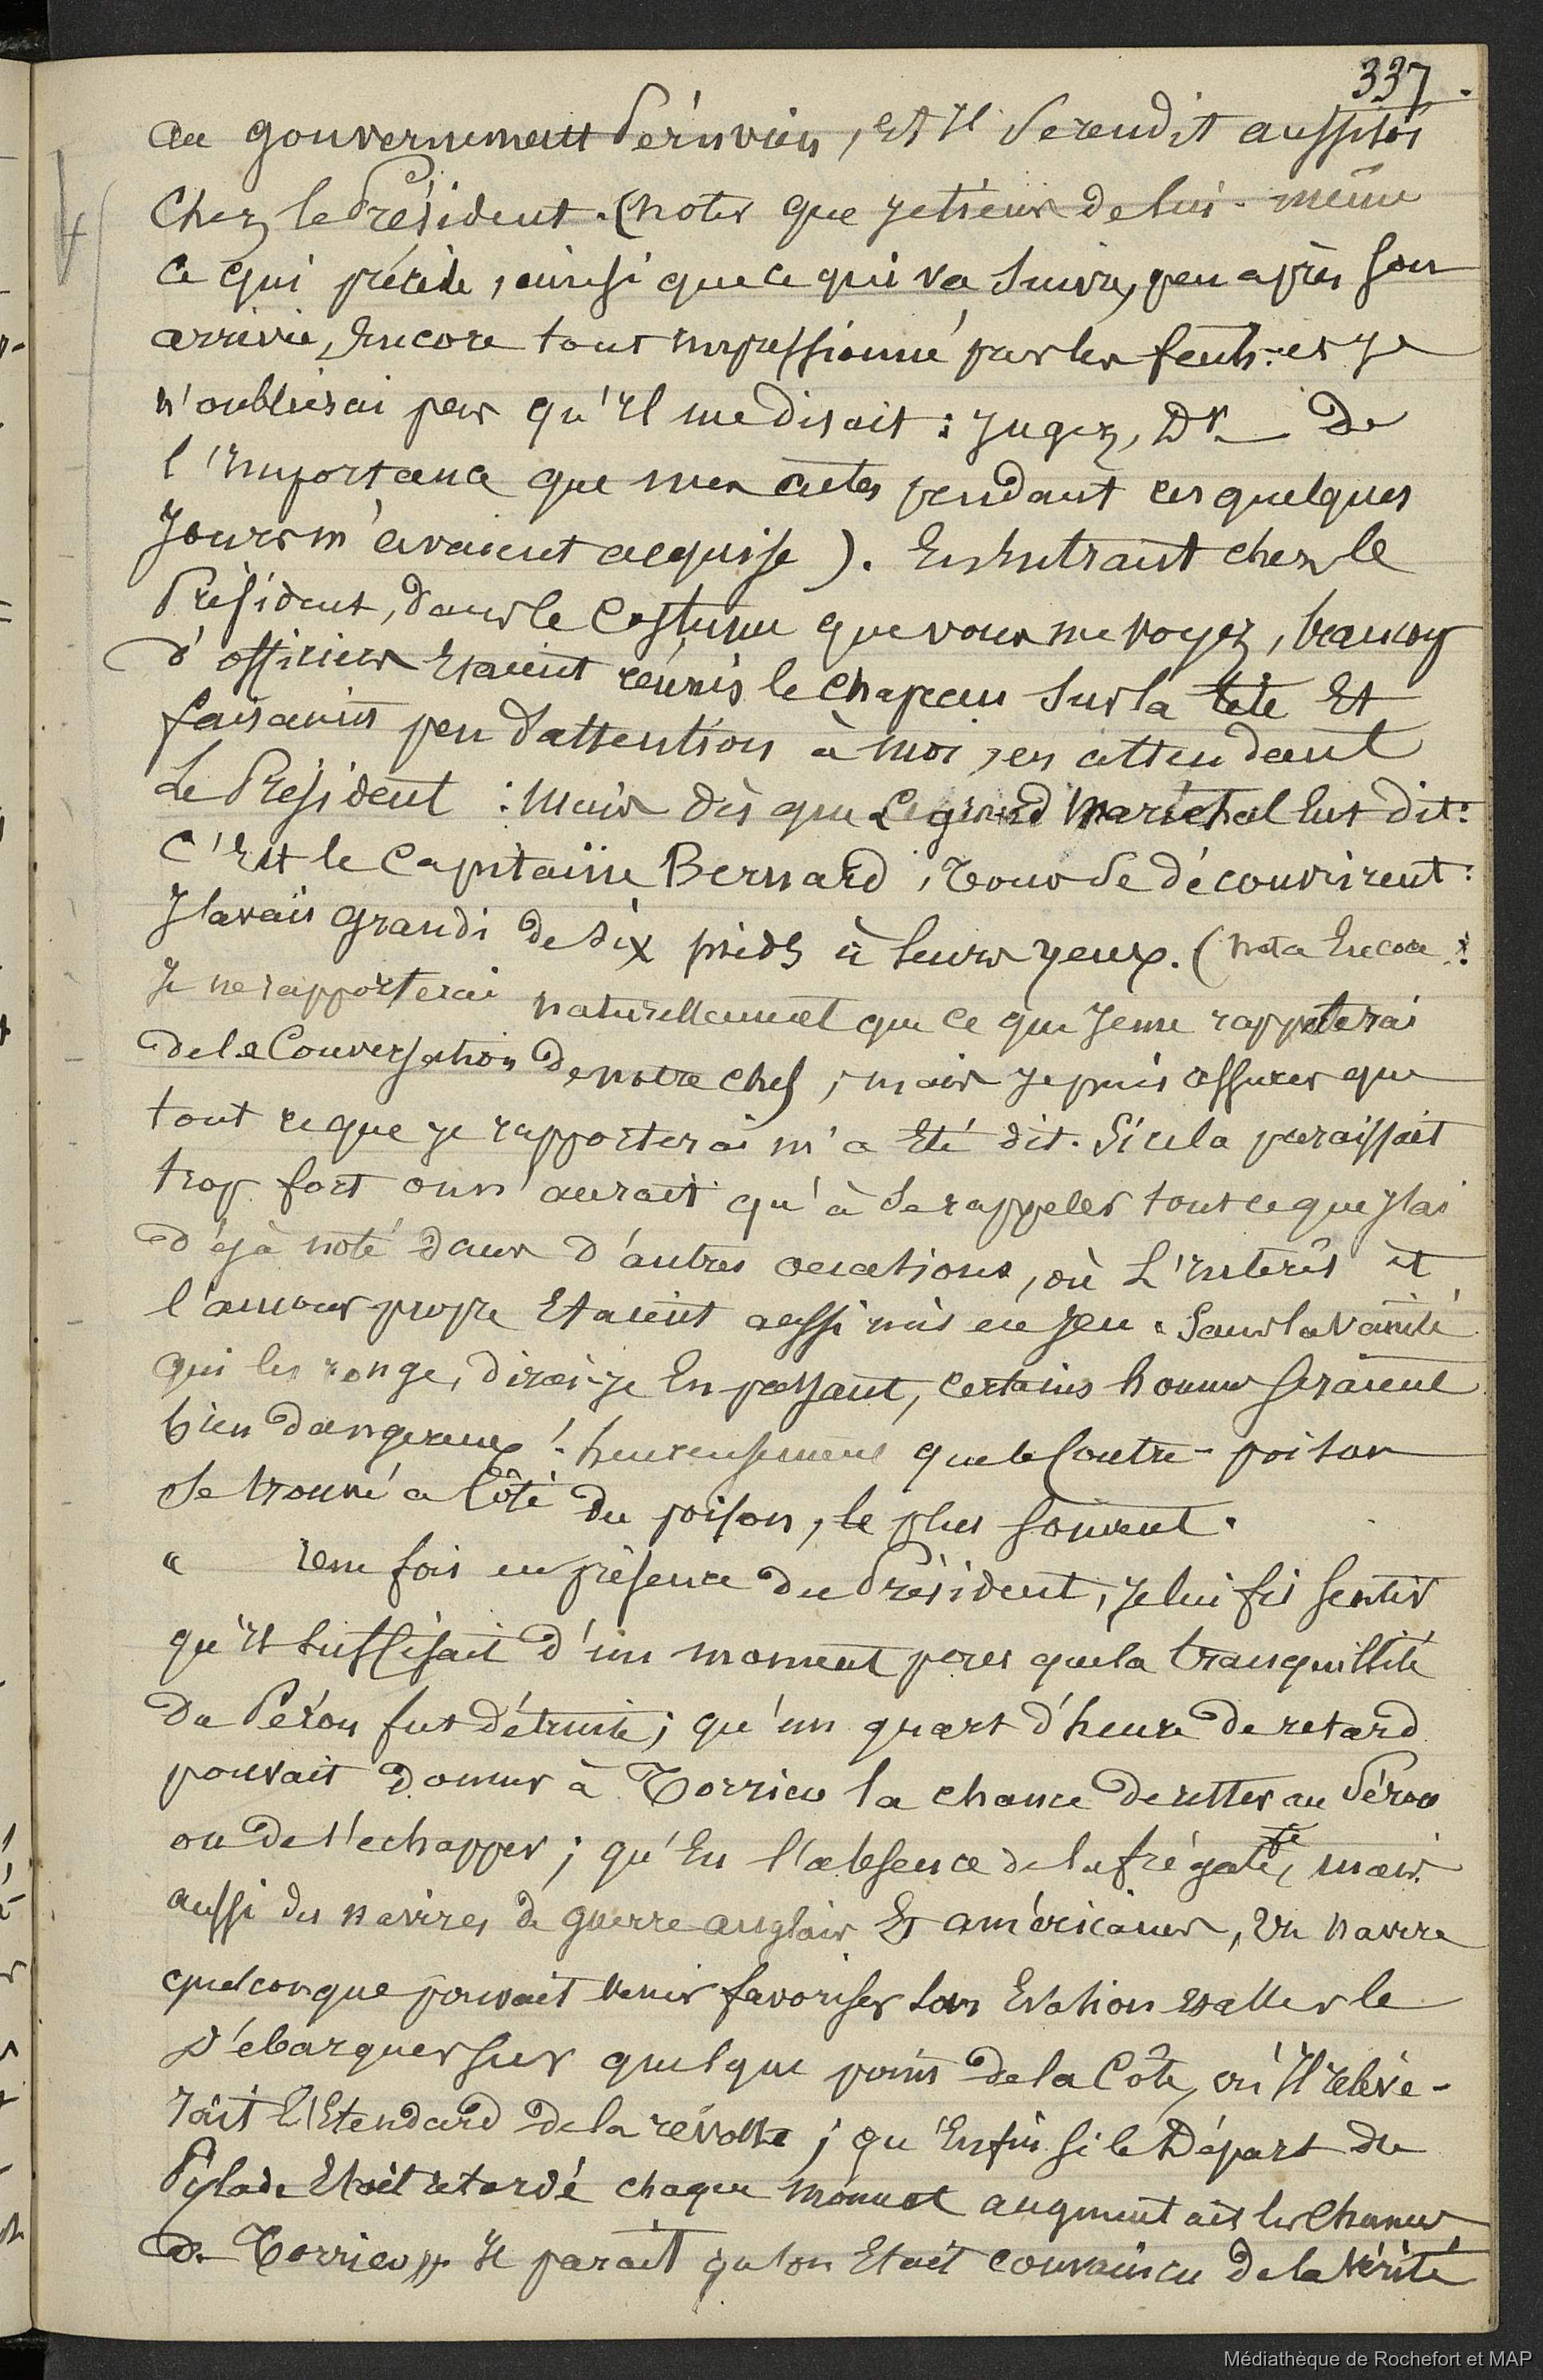 337.
au gouvernement Péruvien, et Il se rendit aussitôt
chez le Président. (noter que je tiens de lui-même
ce qui précède, ainsi que ce qui va suivre, peu après son
arrivée, Encore tout impressionné par les faits: et je
n'oublierai pas qu'Il me disait: Jugez, Dr_ De
l'Importance que mes actes pendant ces quelques
Jours m'avaient acquise). En Entrant chez le
Président, dans le Costume que vous me voyez, beaucoup
d'officiers Etaient réunis le chapeau sur la tête Et
faisaient peu d'attention à moi, en attendant
Le Président: mais dès que Le grand Maréchal leur dit:
C'Est le Capitaine Bernard, Tous se découvrirent:
J'avais grandi de six pieds à leurs yeux. (nota Encore:
Je ne rapporterai naturellement que ce que Je me rappelerai
de la Conversation De notre chef, mais je puis assurer que
tout ce que je rapporterai m'a Eté dit. Si cela paraissait
trop fort on n'aurait qu'à se rappeler tout ce que j'ai
d'éjà noté dans d'autres occasions, où L'Intérêt et
l'amour propre Etaient aussi mis en jeu. Sans la vanité
qui les ronge, dirai-je En passant, certains hommes seraient
bien dangereux! heureusement que le Contre-poison
se trouve à Côté du poison, le plus souvent.
" Une fois en présence du Président, je lui fis sentir
qu'Il suffisait d'un moment pour que la tranquillité
Du Pérou fut détruite; qu'un quart d'heure de retard
pouvait donner à Torrico la chance de rester au Pérou
ou de s'echapper; qu'En l'absence de la frégate, mais
aussi des navires de guerre anglais Et américains, Un navire
quelconque pouvait venir favoriser son Evasion et aller le
D'ébarquer sur quelque point de la Côte, où Il relève-
rait L'Etendard de la révolte; qu'Enfin si le Départ du
Pylade Etait retardé chaque moment augmentait les chances
de Torrico » Il parait qu'on Etait convaincu de la vérité
Médiathèque de Rochefort et MAP